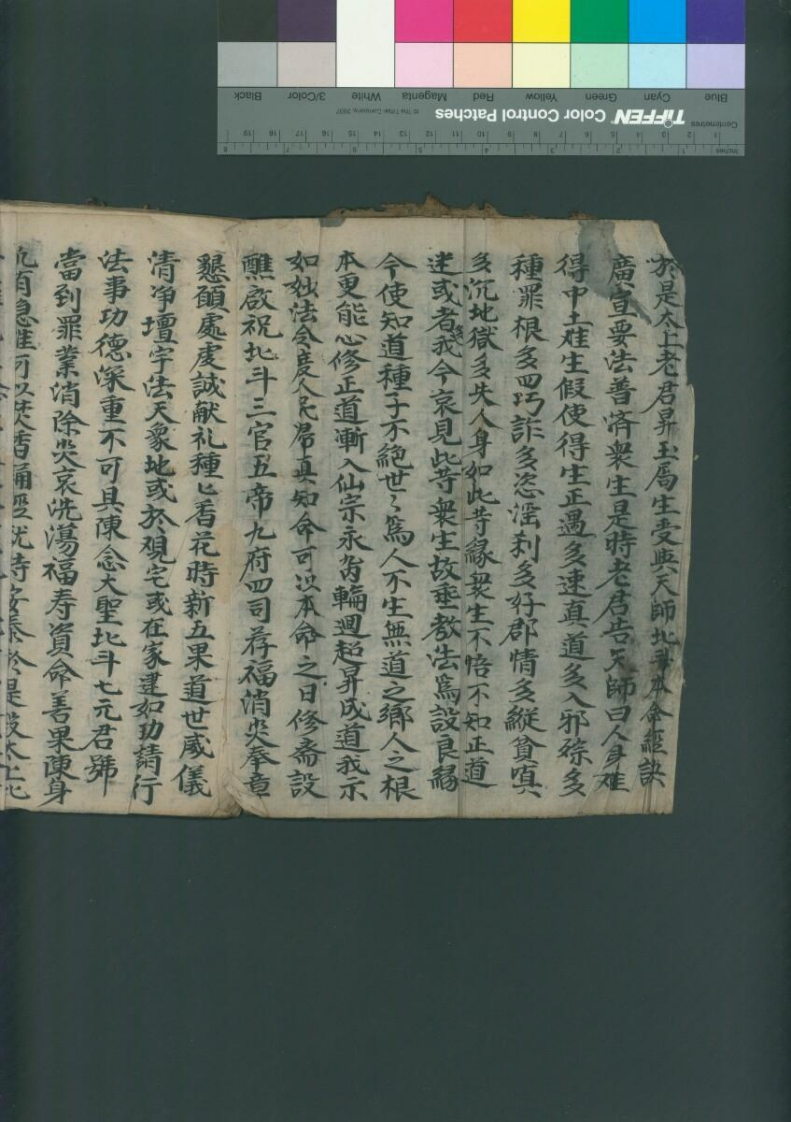 Blue Cyan Green Yellow Red Magenta White 3/Color Black
TIFFEN Color Control Patches © The Tiffen Company, 2007
Centimetres
Inches
於是太上老君昇玉局生受與天師北斗本命經訣
廣宣要法普濟衆生是時老君告天師曰人身难
得中土难生假使得生正遇多迷真道多入邪宗多
種罪根多四巧詐多恣淫刹多好郡情多縱貪嗔
多沉地獄多失人身如此等緣衆生不悟不知正道
迷或者我今哀見此等衆生故垂教法爲設良緣
令使知道種子不絕世〻爲人不生無道之鄉人之根
本更能心修正道漸入仙宗永离輪迴超昇成道我示
如妙法令度人民歸真知命可以本命之日修斋設
醮啟祝北斗三官五帝九府四司荐福消灾奉章
懇願處虔誠献礼種〻香花時新五果道世威儀
清净壇宇法天象地或於觀宅或在家建如功請行
法事功德深重不可具陳念大聖北斗七元君號
當到罪業消除灾衰洗蕩福寿資命善果陳身